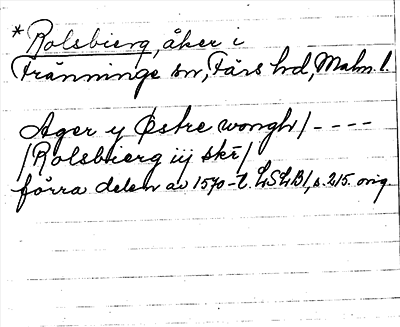 *Rolsbierg, åker i
Tränninge sn, Färs hd, Malm. l.
Ager y Østre wongh/----
/Rolsbierg iij skr/
förra delen av 1570-t. LSLB1, s. 215. orig.